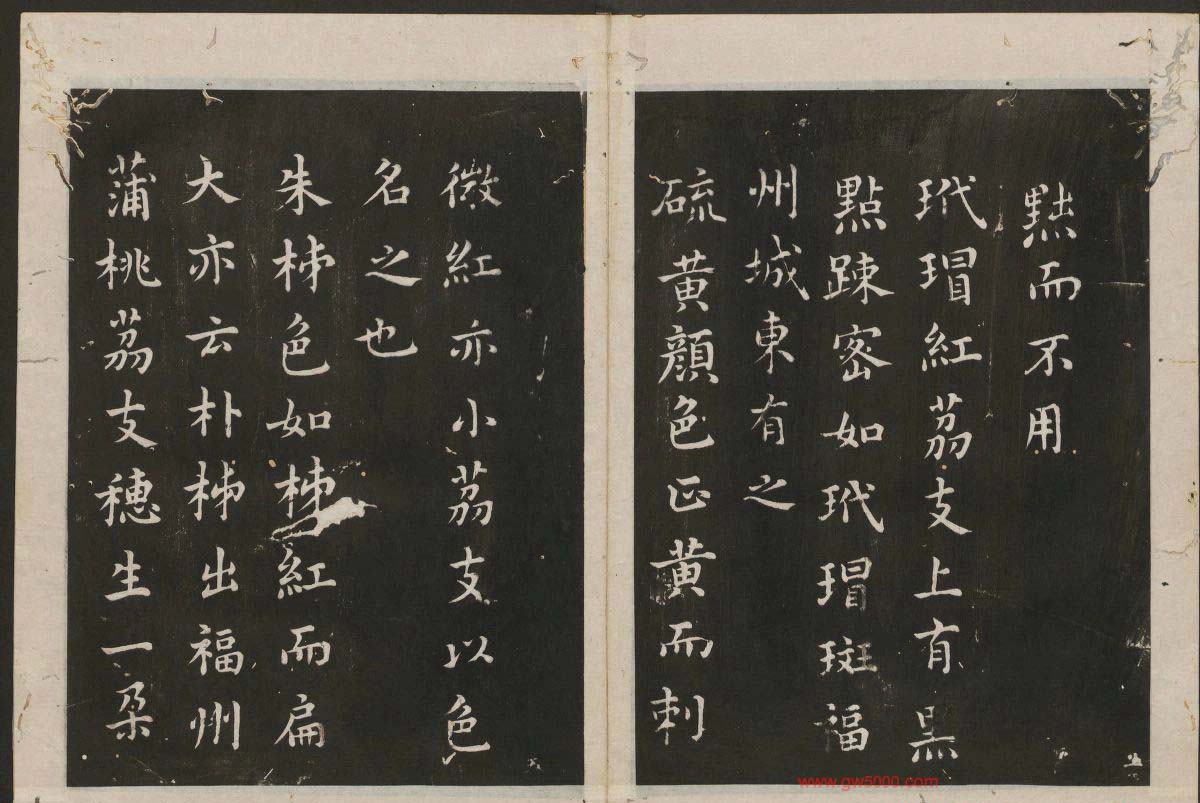 黜而不用
玳瑁紅荔支上有黑
點踈宻如玳瑁斑福
州城東有之
硫黄顔色正黄而刺
微紅亦小荔支以色
名之也
朱柹色如柹紅而扁
大亦云朴柹出福州
蒲桃荔支穗生一朵
www.gw5000.com